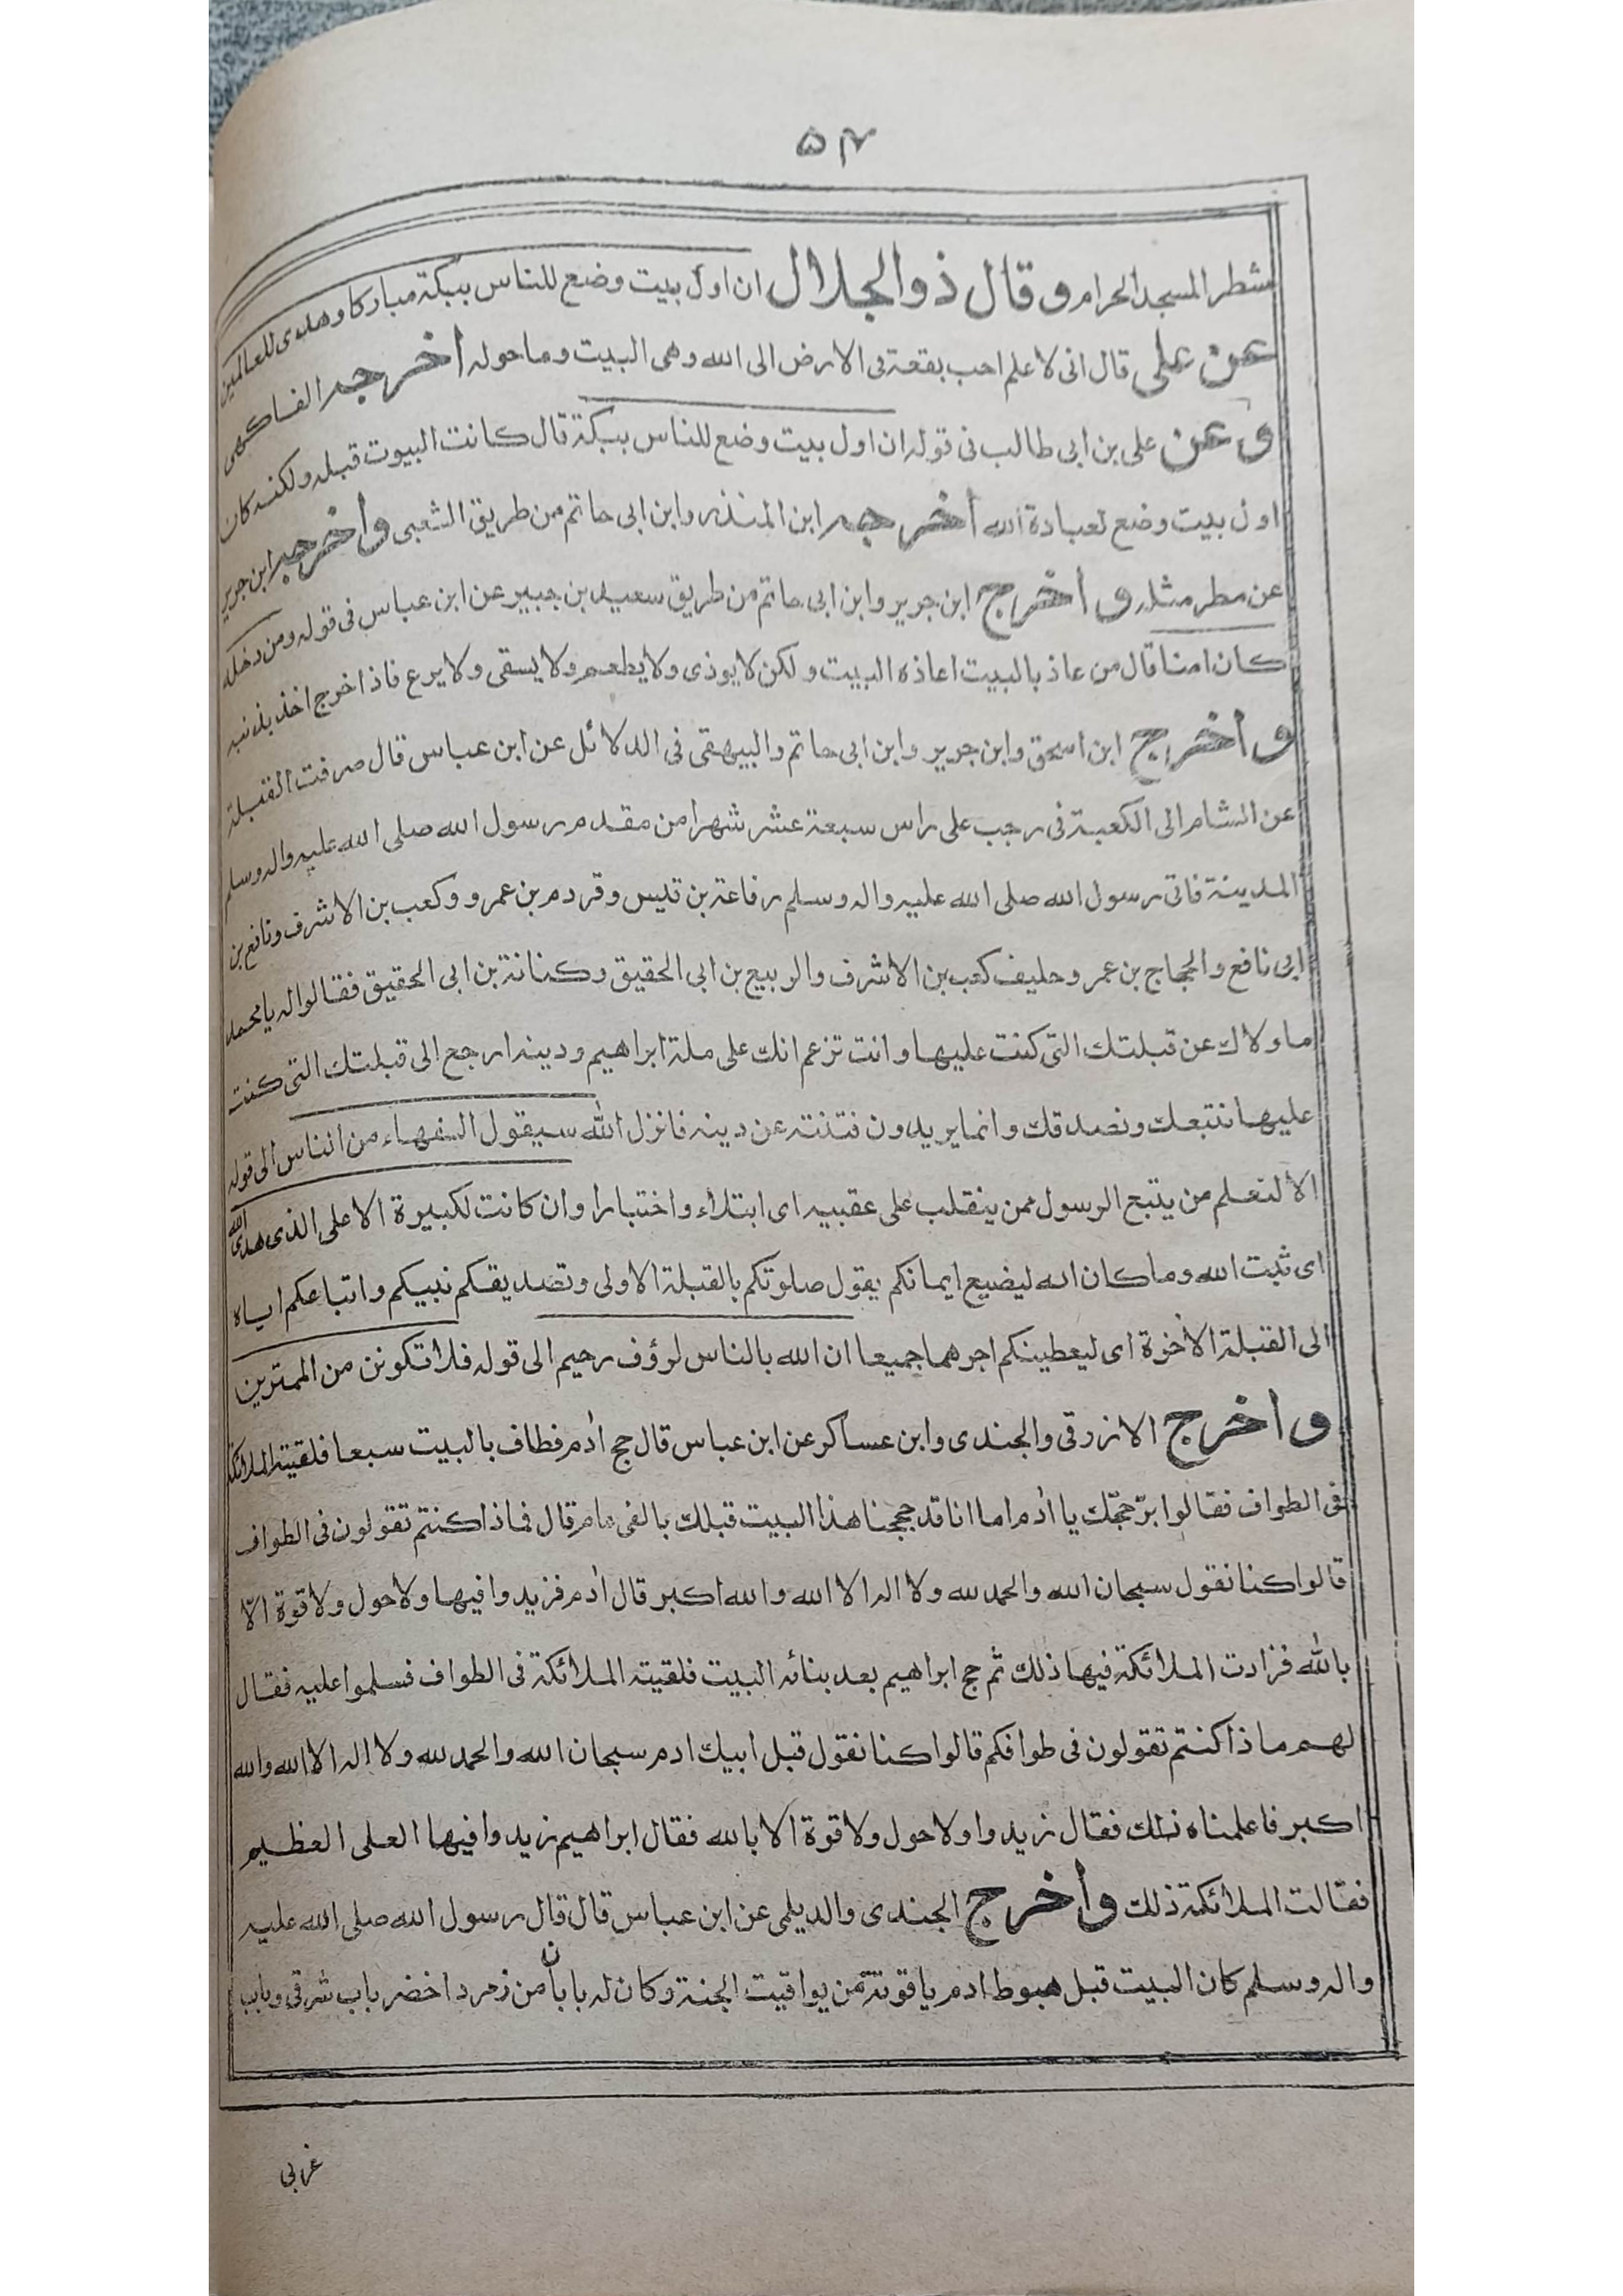 ۵۴
شطر المسجد الحرام وقال ذو الجلال ان اول بيت وضع للناس ببكة مباركا وهدى للعالمين
عن على قال انى لاعلم احب بقعة فى الارض الى الله وهى البيت وما حوله اخرجه الفاكهى
وعن على بن ابى طالب فى قوله ان اول بيت وضع للناس ببكة قال كانت البيوت قبله ولكنه كان
اول بيت وضع لعبادة الله اخرجه ابن المنذر وابن ابى حاتم من طريق الشعبى واخرجه ابن جرير
عن مطر مثله واخرج ابن جرير وابن ابى حاتم من طريق سعيد بن جبير عن ابن عباس فى قوله ومن دخله
كان امنا قال من عاذ بالبيت اعاذه البيت ولكن لا يوذى ولا يطعم ولا يسقى ولا يرع فاذا خرج اخذ بذنبه
واخرج ابن اسحق وابن جرير وابن ابى حاتم والبيهقى فى الدلائل عن ابن عباس قال صرفت القبلة
عن الشام الى الكعبة فى رجب على راس سبعة عشر شهرا من مقدم رسول الله صلى الله عليه واله وسلم
المدينة فاتى رسول الله صلى الله عليه واله وسلم رفاعة بن قيس وقردم بن عمرو وكعب بن الاشرف ونافع بن
ابى نافع والحجاج بن عمر وحليف كعب بن الاشرف والربيع بن ابى الحقيق وكنانة بن ابى الحقيق فقالوا له يا محمد
ما ولاك عن قبلتك التى كنت عليها وانت تزعم انك على ملة ابراهيم ودينه ارجع الى قبلتك التى كنت
عليها نتبعك ونصدقك وانما يريدون فتنته عن دينه فانزل الله سيقول السفهاء من الناس الى قوله
الا لنعلم من يتبع الرسول ممن ينقلب على عقبيه اى ابتلاء واختبارا وان كانت لكبيرة الا على الذى هدى الله
اى ثبت الله وما كان الله ليضيع ايمانكم يقول صلوتكم بالقبلة الاولى وتصديقكم نبيكم واتباعكم اياه
الى القبلة الأخرة اى ليعطينكم اجرهما جميعا ان الله بالناس لرؤف رحيم الى قوله فلا تكونن من الممترين
واخرج الازرقى والجندى وابن عساكر عن ابن عباس قال حج أدم فطاف بالبيت سبعا فلقيته الملائكة
فى الطواف فقالوا برّ حجّك يا أدم اما انا قد حججنا هذا البيت قبلك بالفى عام قال فماذا كنتم تقولون فى الطواف
قالوا كنا نقول سبحان الله والحمد لله ولا اله الا الله والله اكبر قال أدم فزيدوا فيها ولا حول ولا قوة الّا
بالله فزادت الملائكة فيها ذلك ثم حج ابراهيم بعد بنائه البيت فلقيته الملائكة فى الطواف فسلموا عليه فقال
لهم ما ذا كنتم تقولون فى طوافكم قالوا كنا نقول قبل ابيك ادم سبحان الله والحمد لله ولا اله الا الله والله
اكبر فاعلمناه ذلك فقال زيدوا ولا حول ولا قوة الا بالله فقال ابراهيم زيدوا فيها العلى العظيم
فقالت الملائكة ذلك وأخرج الجندى والديلمى عن ابن عباس قال قال رسول الله صلى الله عليه
واله وسلم كان البيت قبل هبوط ادم ياقوتة من يواقيت الجنة وكان له بابان من زمرد اخضر باب شرقى وباب
غربى